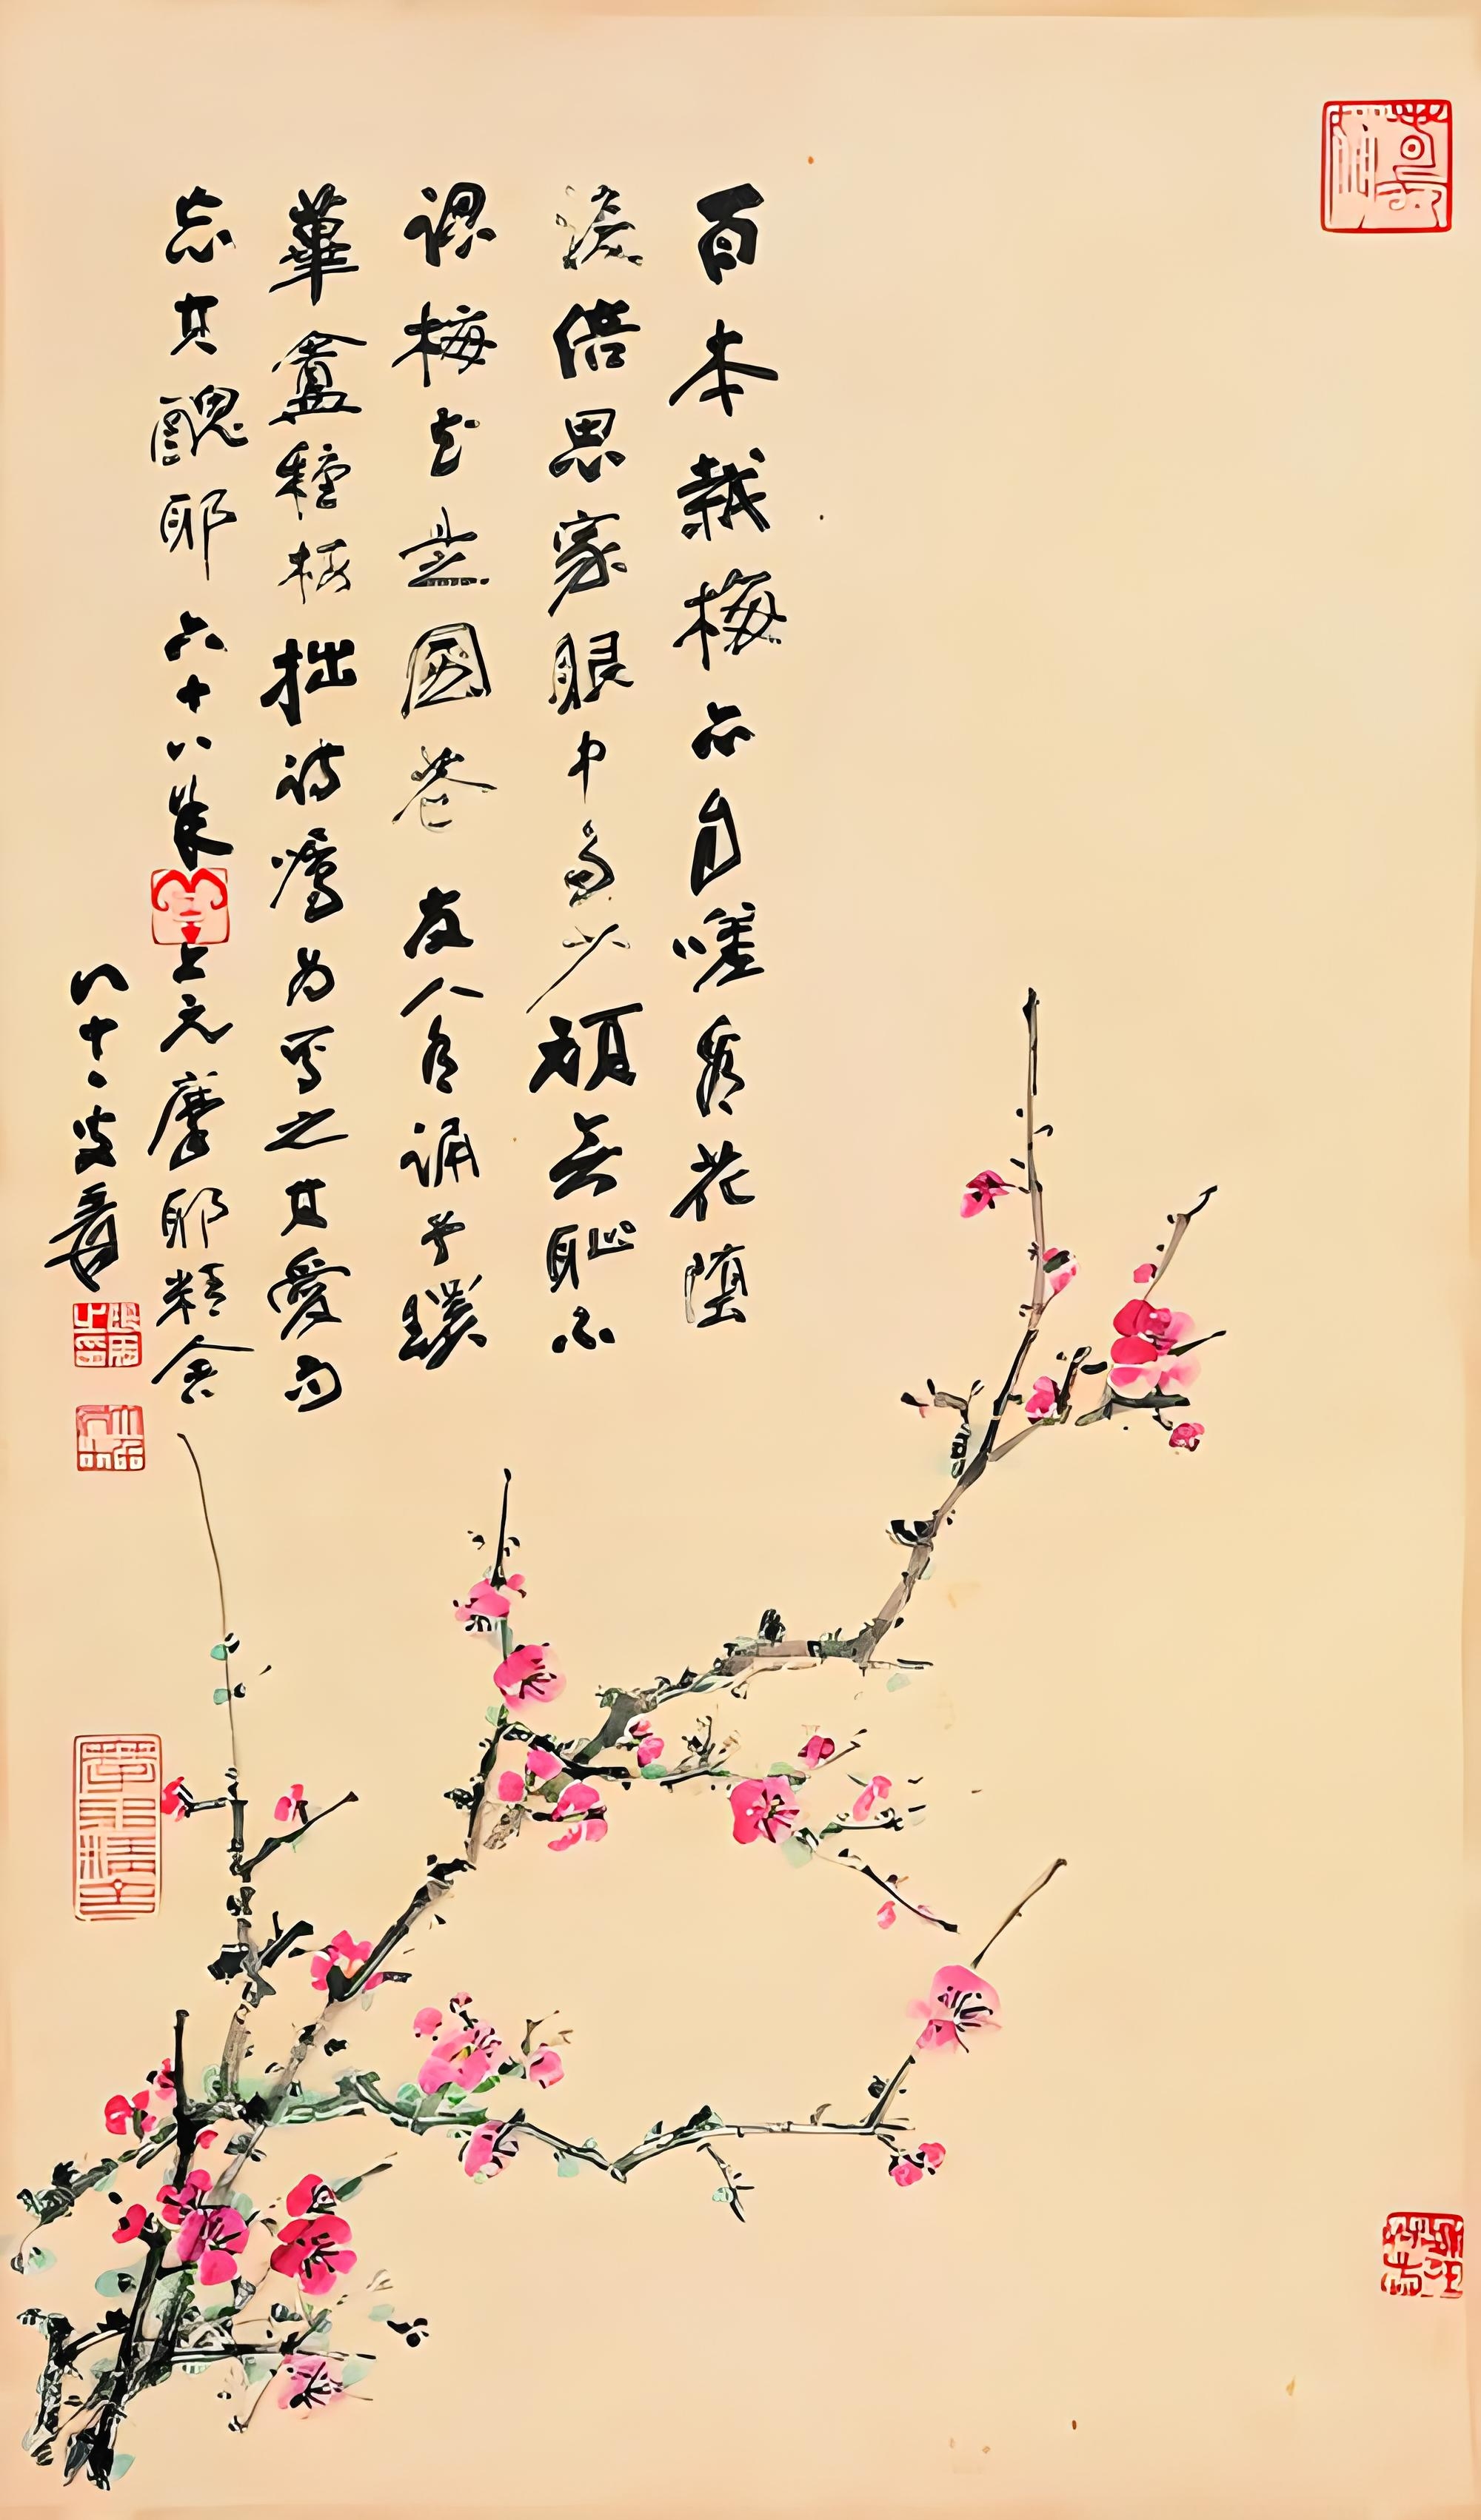 百本栽梅亦自嗟看花墮
淚倍思家眼中多少頑無恥不
認梅花是國花 友人有誦予環
蓽盦種梅拙詩囑為寫之其愛而
忘其醜耶 六十八年上元摩耶精舍
八十一叟爰